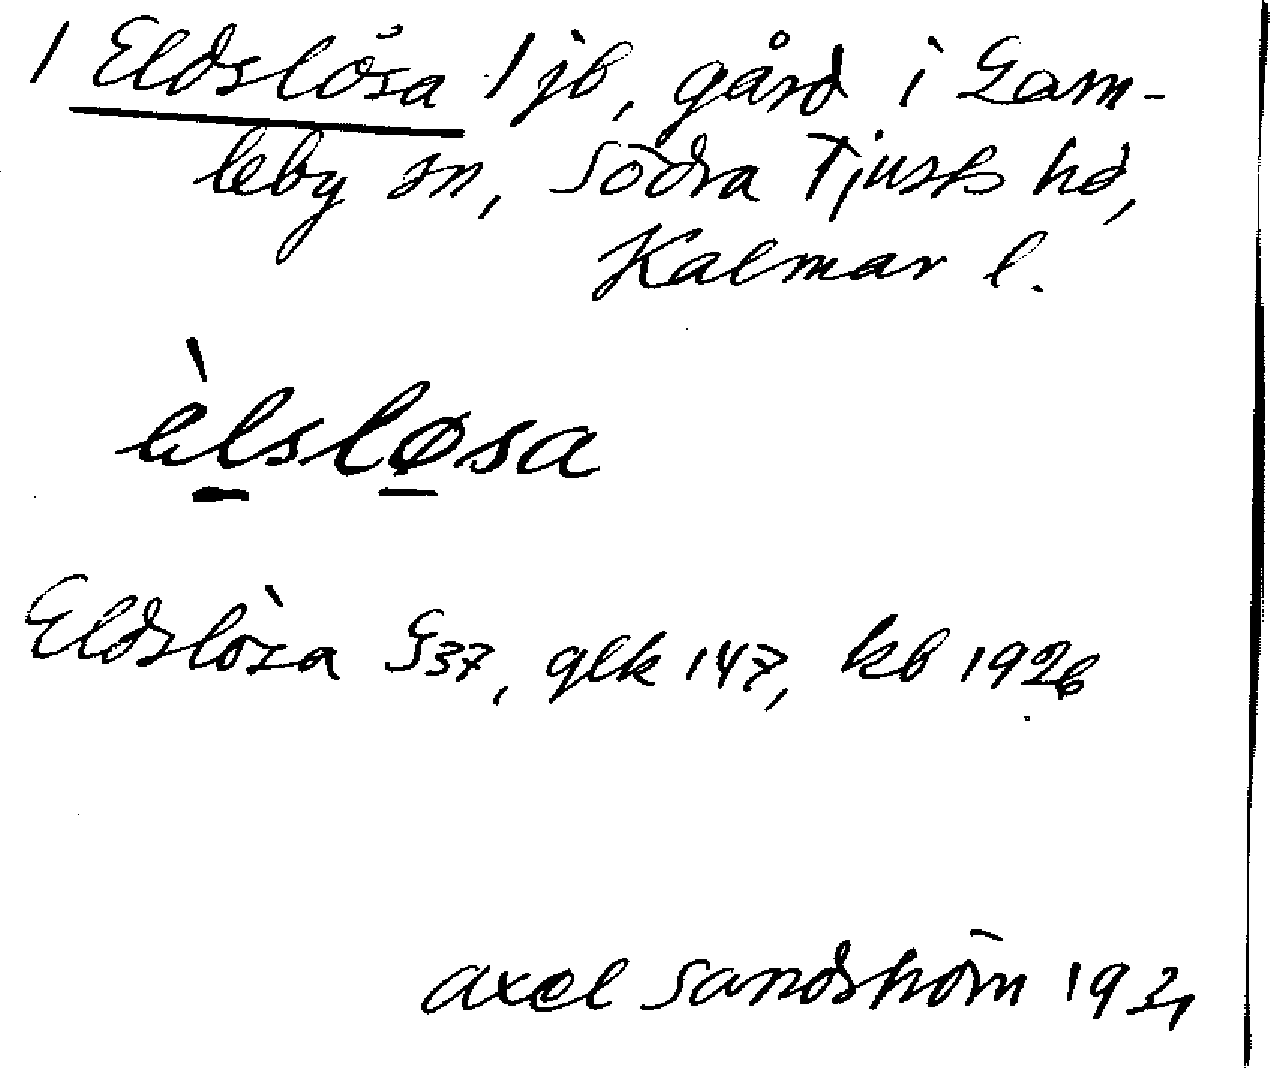 1 Eldslösa 1 jb, gård i Gam-
leby sn, Södra Tjusts hd,
Kalmar l.
èlsløsa
Eldslösa G37, glk 147, kb 1926
Axel Sandström